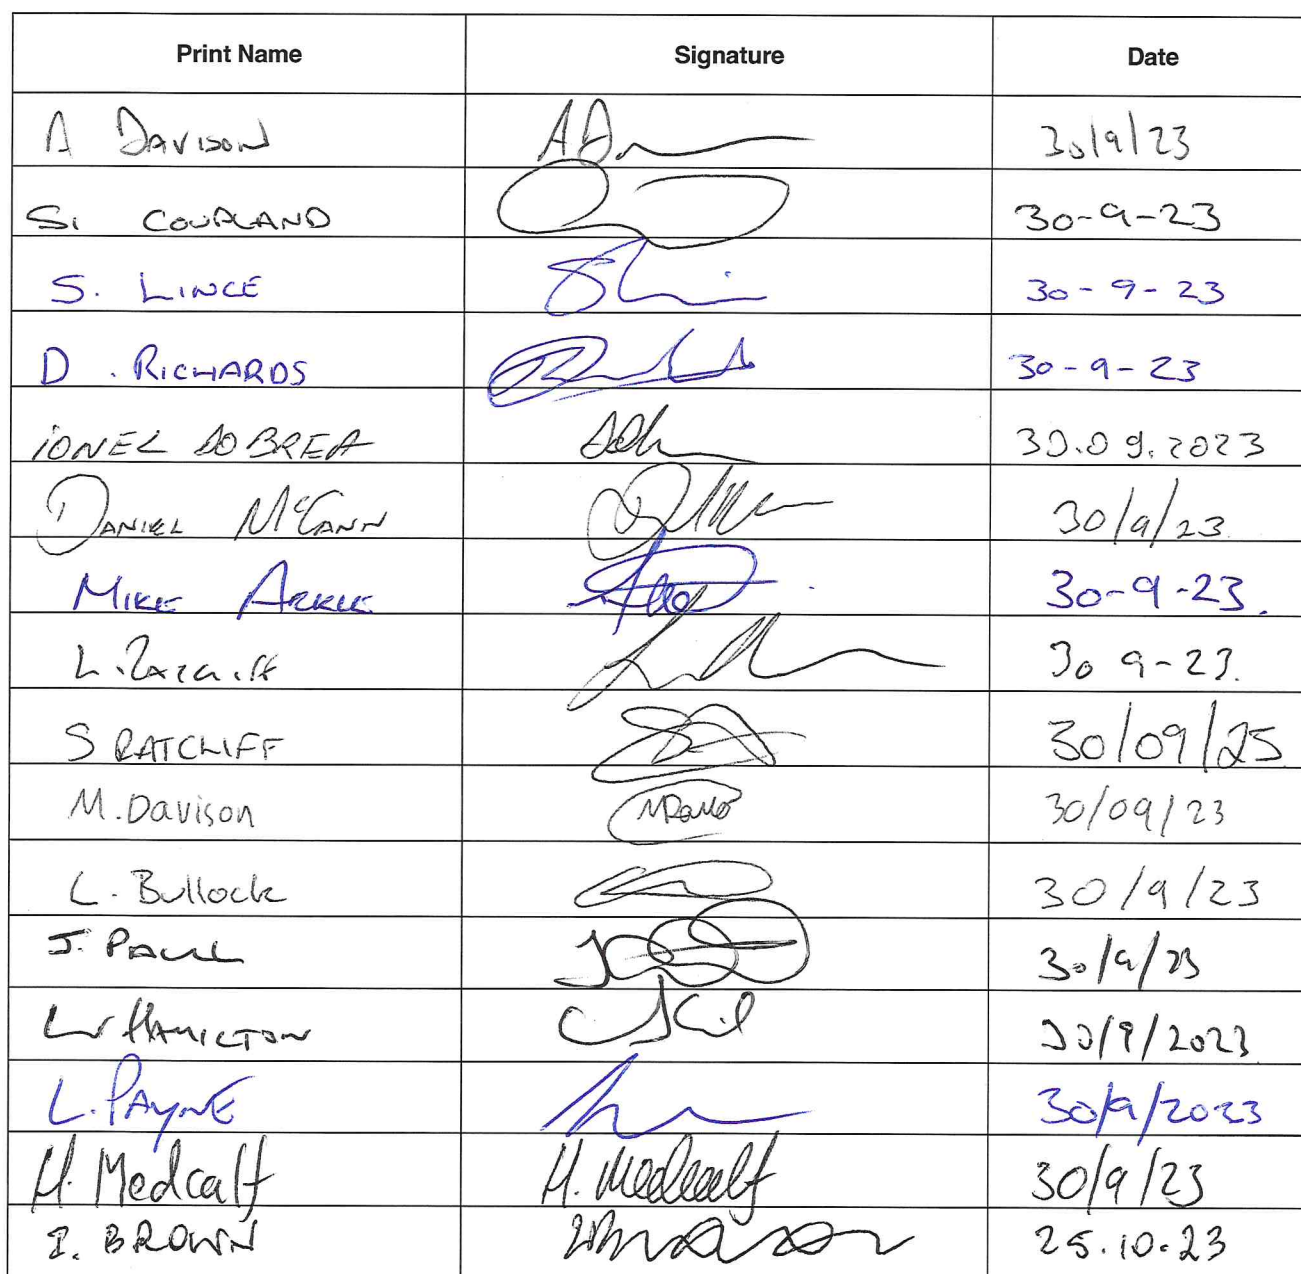 Print Name Signature Date
A DAVISON 30/9/23
S. COUPLAND 30-9-23
S. LINCE 30-9-23
D. RICHARDS 30-9-23
IONEL DOBREA 30.09.2023
DANIEL McCANN 30/9/23
MIKE ARKLE 30-9-23.
L. Ratcliff 30 9-23.
S RATCLIFF 30/09/25
M. Davison 30/09/23
L. Bullock 30/9/23
J. PAUL 30/9/23
HAMILTON 30/9/2023
L. PAYNE 30/9/2023
H. Medcalf H. Medcalf 30/9/23
I. BROWN 25.10.23